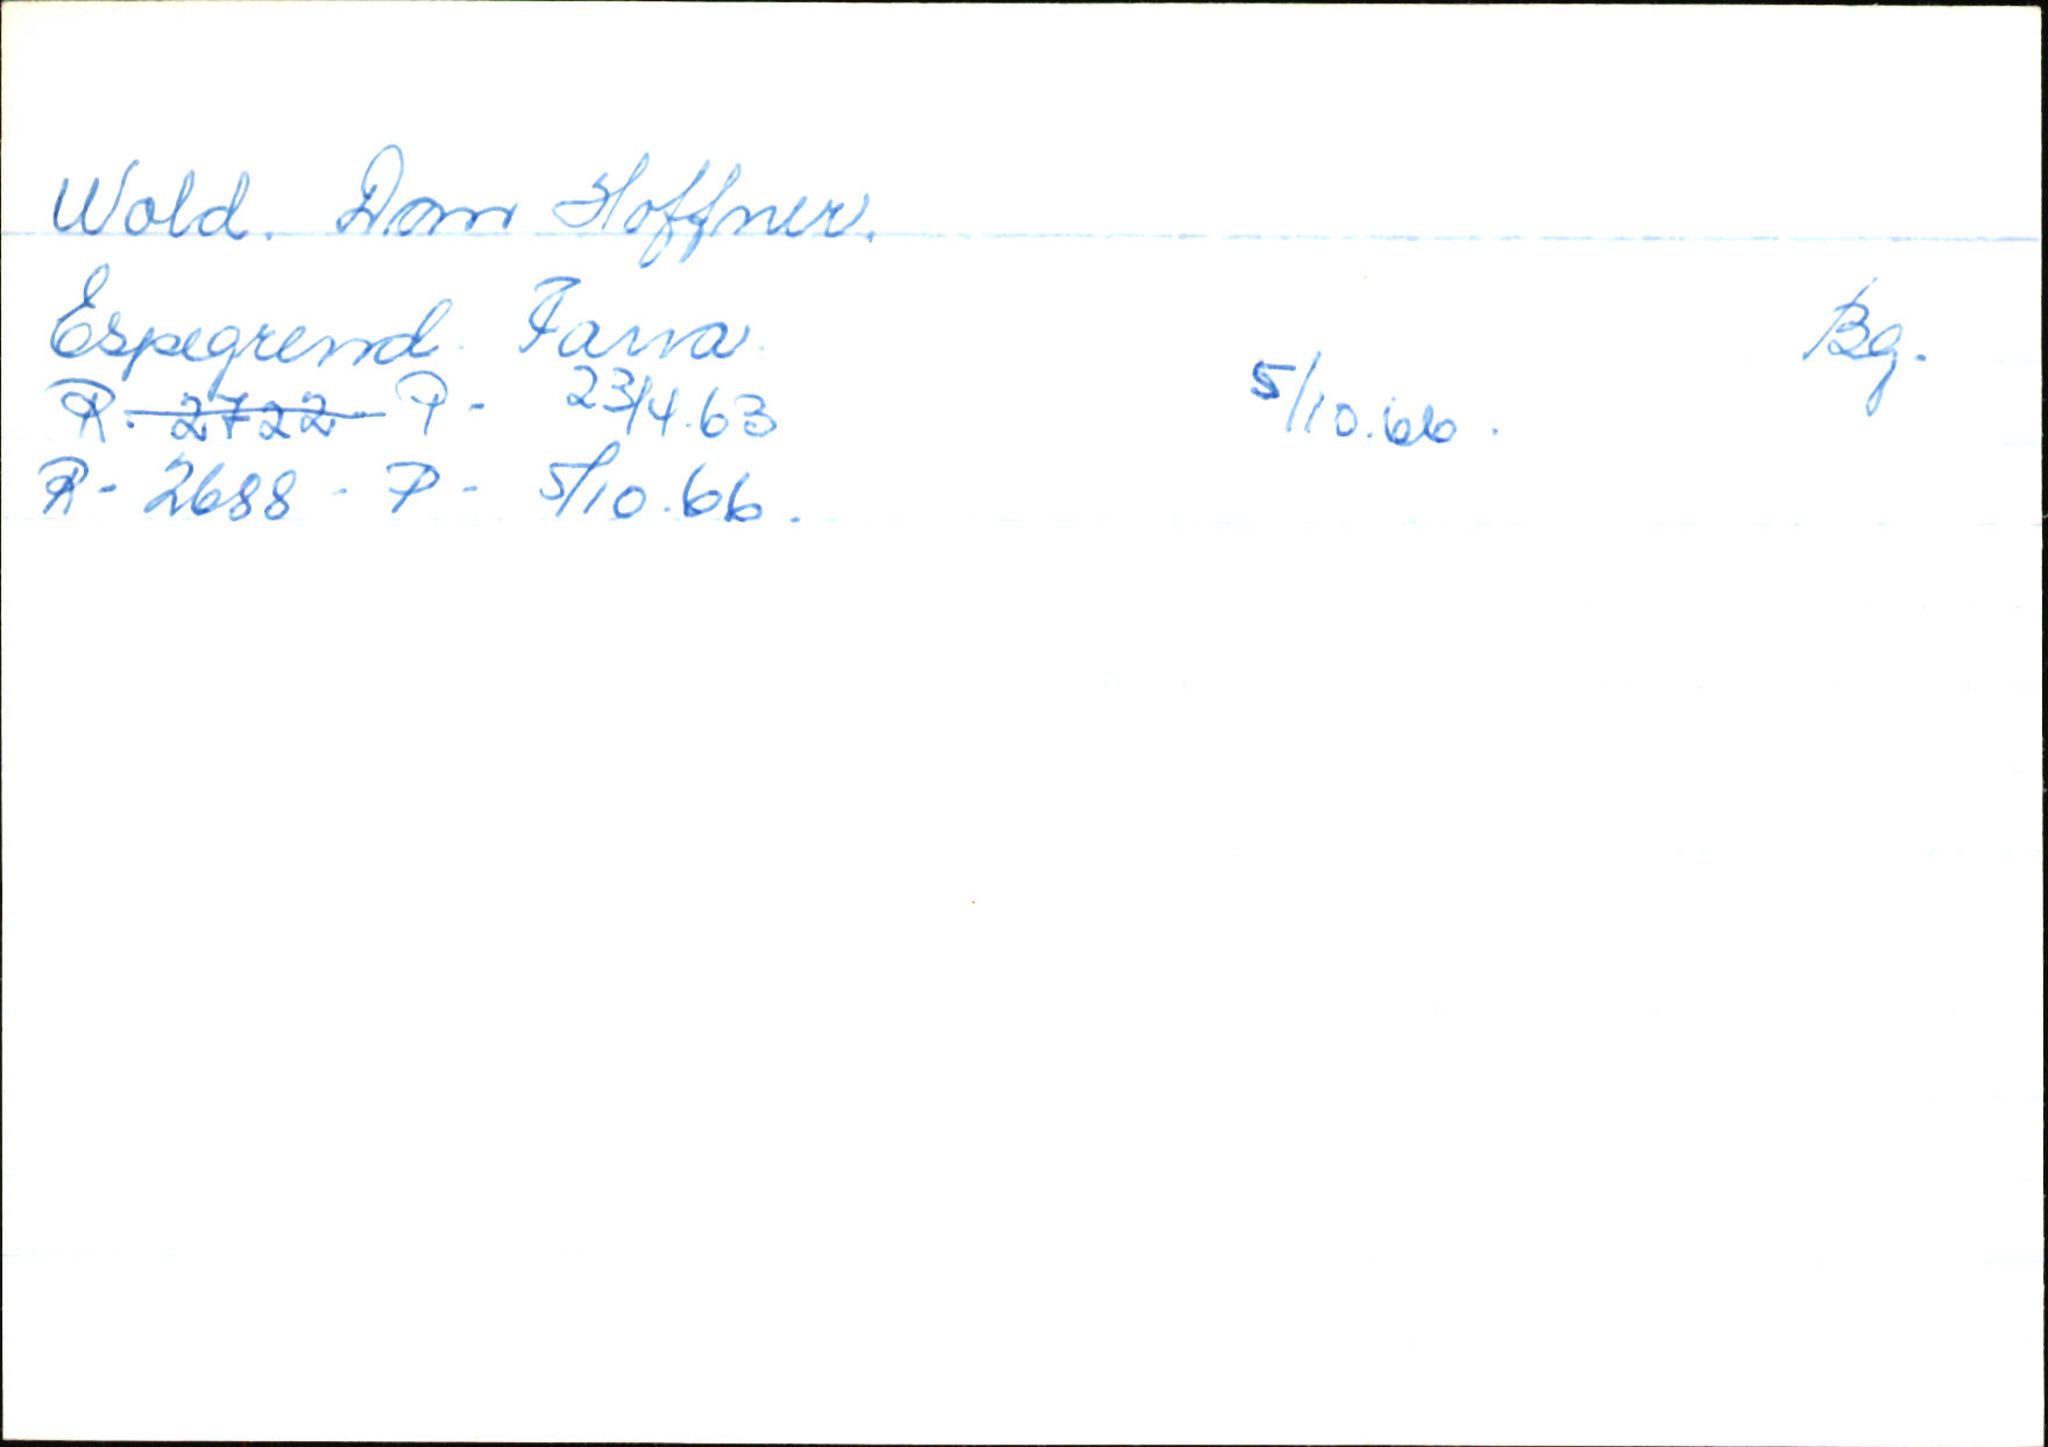 Wold. Dan Hoffner.
Espegrend. Fana. Bg.
R. 2722 P - 23/4.63 5/10.66.
R - 2688 - P - 5/10.66.